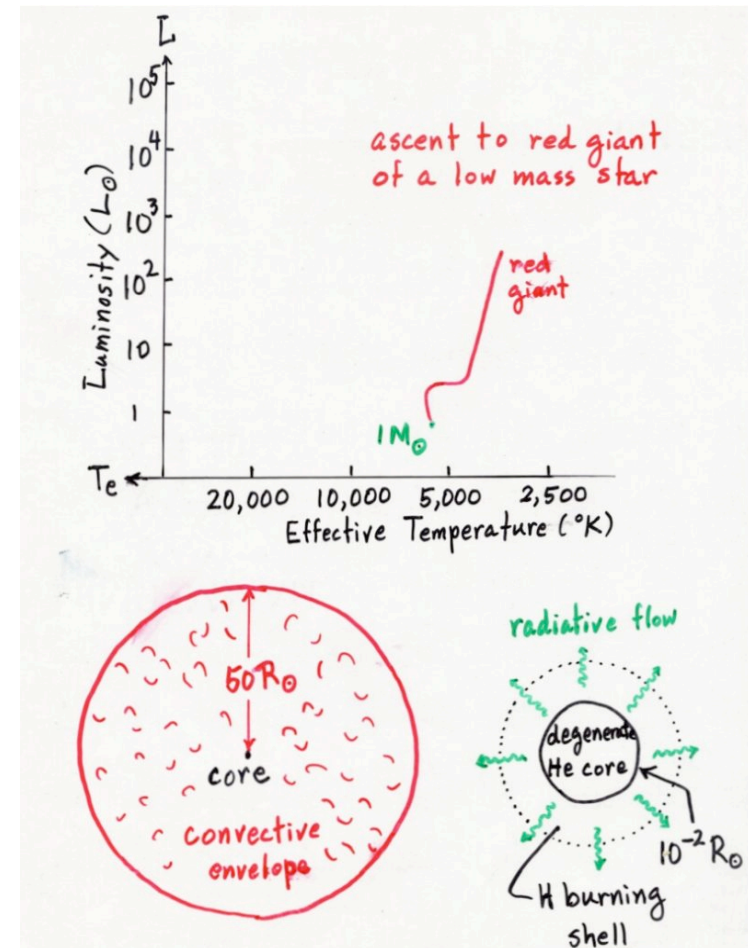 L
10⁵
10⁴
10³
10²
10
1
Luminosity (L☉)
ascent to red giant
of a low mass star
red
giant
1M☉
Te
20,000 10,000 5,000 2,500
Effective Temperature (°K)
50R☉
core
convective
envelope
radiative flow
degenerate
He core
10⁻² R☉
H burning
shell